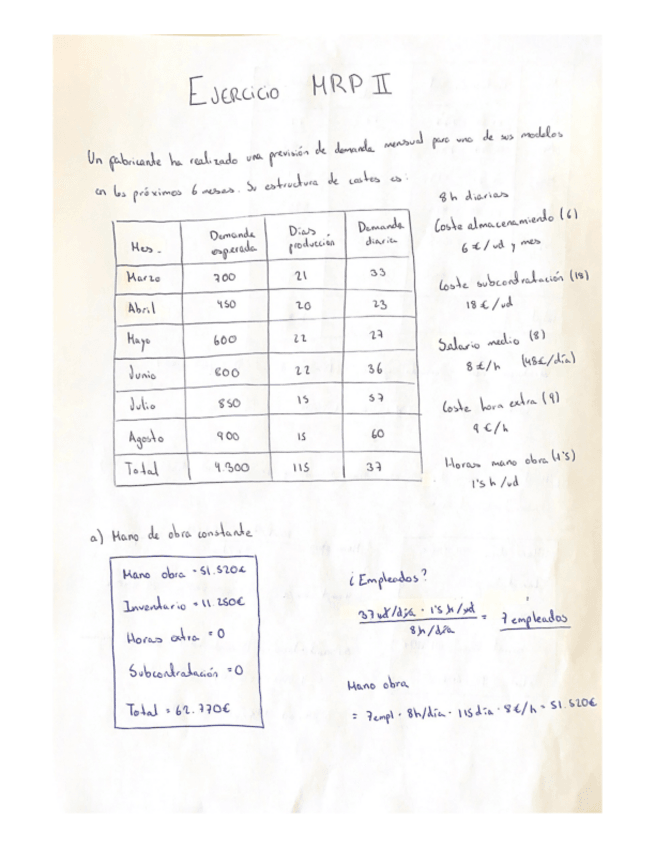 EJERCICIO MRP II
Un fabricante ha realizado una previsión de demanda mensual para uno de sus modelos
en los próximos 6 meses. Su estructura de costes es:
Mes. Demanda esperada Días producción Demanda diaria
Marzo 700 21 33
Abril 450 20 23
Mayo 600 22 27
Junio 800 22 36
Julio 850 15 57
Agosto 900 15 60
Total 4.300 115 37
8h diarias
Coste almacenamiento (6)
6 €/ud y mes
Coste subcontratación (18)
18 €/ud
Salario medio (8)
8 €/h (48€/día)
Coste hora extra (9)
9 €/h
Horas mano obra (1'5)
1'5 h/ud
a) Mano de obra constante
Mano obra = 51.520€
Inventario = 11.250€
Horas extra = 0
Subcontratación = 0
Total = 62.770€
¿Empleados?
37 ud/día · 1'5 h/ud
8h/día
= 7 empleados
Mano obra
= 7empl · 8h/día · 115 día · 8€/h = 51.520€